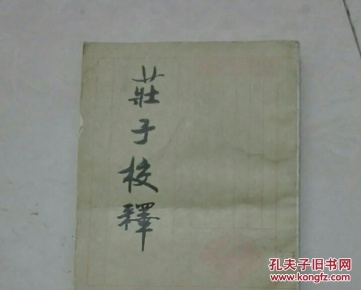 莊子校釋
孔夫子旧书网
www.kongfz.com